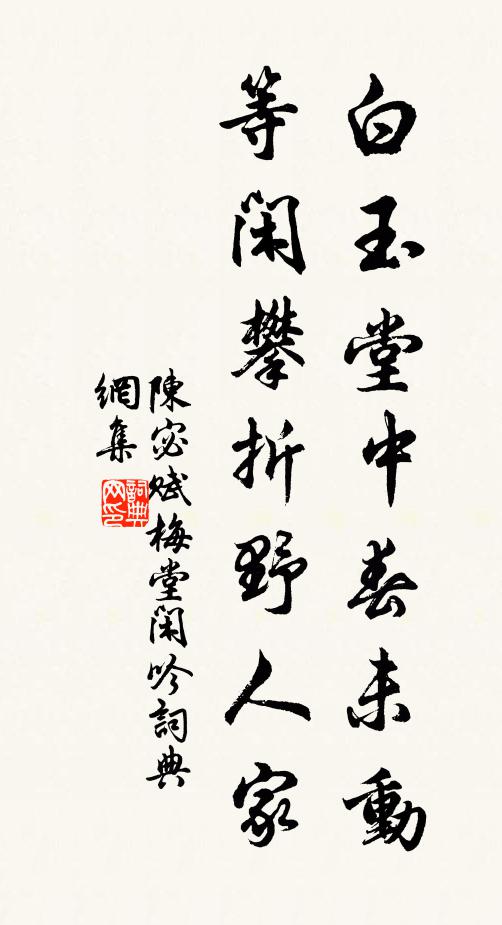 白玉堂中春未動
等閑攀折野人家
陳宓賦梅堂閑吟詞典
網集
詞典網印